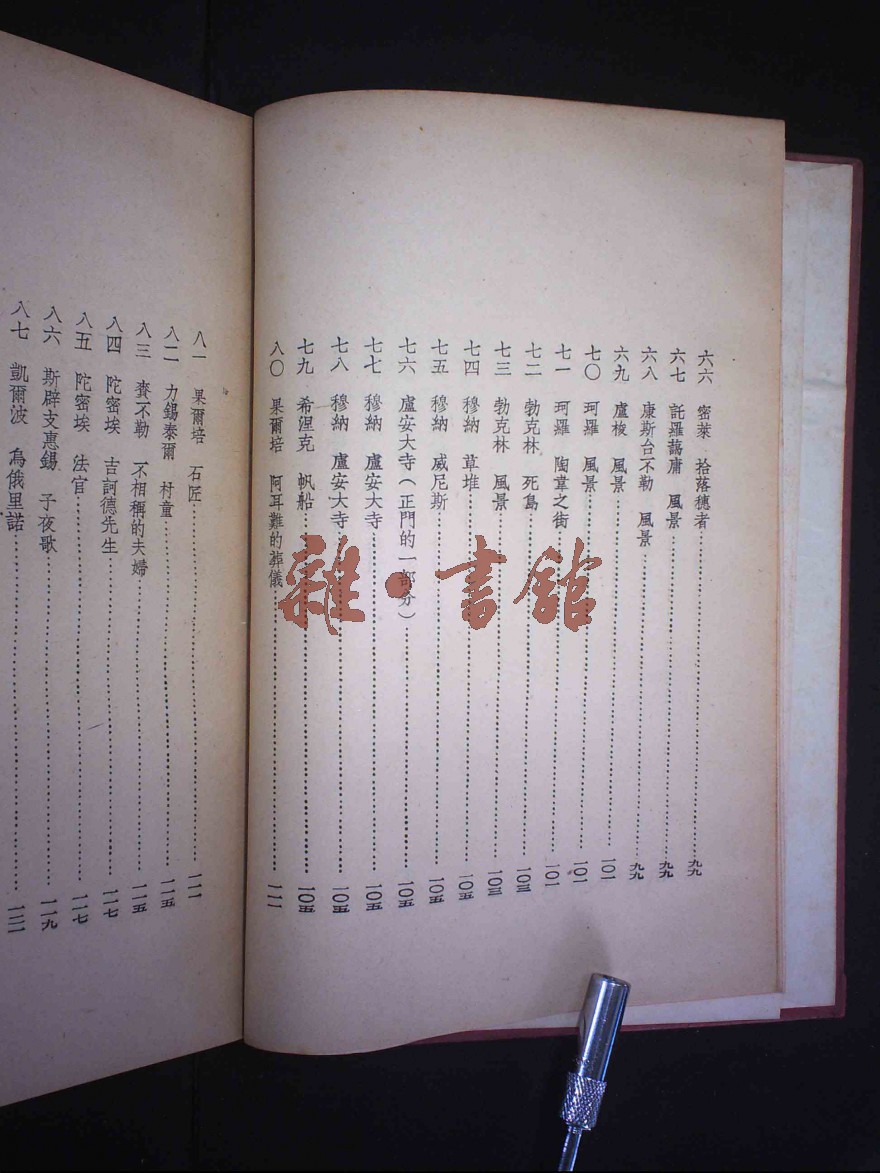 六六 密萊 拾落穗者 九九
六七 託羅藹庸 風景 九九
六八 康斯台不勒 風景 九九
六九 盧梭 風景 一〇一
七〇 珂羅 風景 一〇一
七一 珂羅 陶韋之街 一〇一
七二 勃克林 死島 一〇三
七三 勃克林 風景 一〇三
七四 穆納 草堆 一〇五
七五 穆納 威尼斯 一〇五
七六 盧安大寺(正門的一部分) 一〇五
七七 穆納 盧安大寺 一〇五
七八 穆納 盧安大寺 一〇五
七九 希涅克 帆船 一〇五
八〇 果爾培 阿耳難的葬儀 一一一
八一 果爾培 石匠 一一一
八二 力錫泰爾 村童 一一五
八三 賚不勒 不相稱的夫婦 一一五
八四 陀密埃 吉訶德先生 一一七
八五 陀密埃 法官 一一七
八六 斯辟支惠錫 子夜歌 一一九
八七 凱爾波 烏俄里諾 一二一
雜·書館